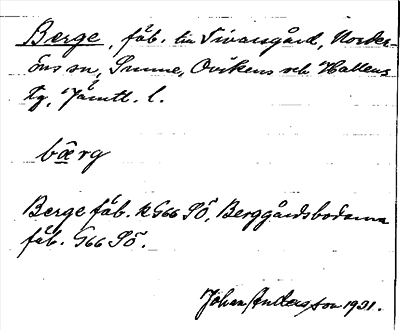 Berge, fäb. till Sivarsgård, Norder-
öns sn, Sunne, Ovikens och Hallens
tg, Jämtl. l.
bærg
Berge fäb. k G66 SÖ, Berggårdsbodarna
fäb. G66 SÖ.
Johan Andersson 1931.